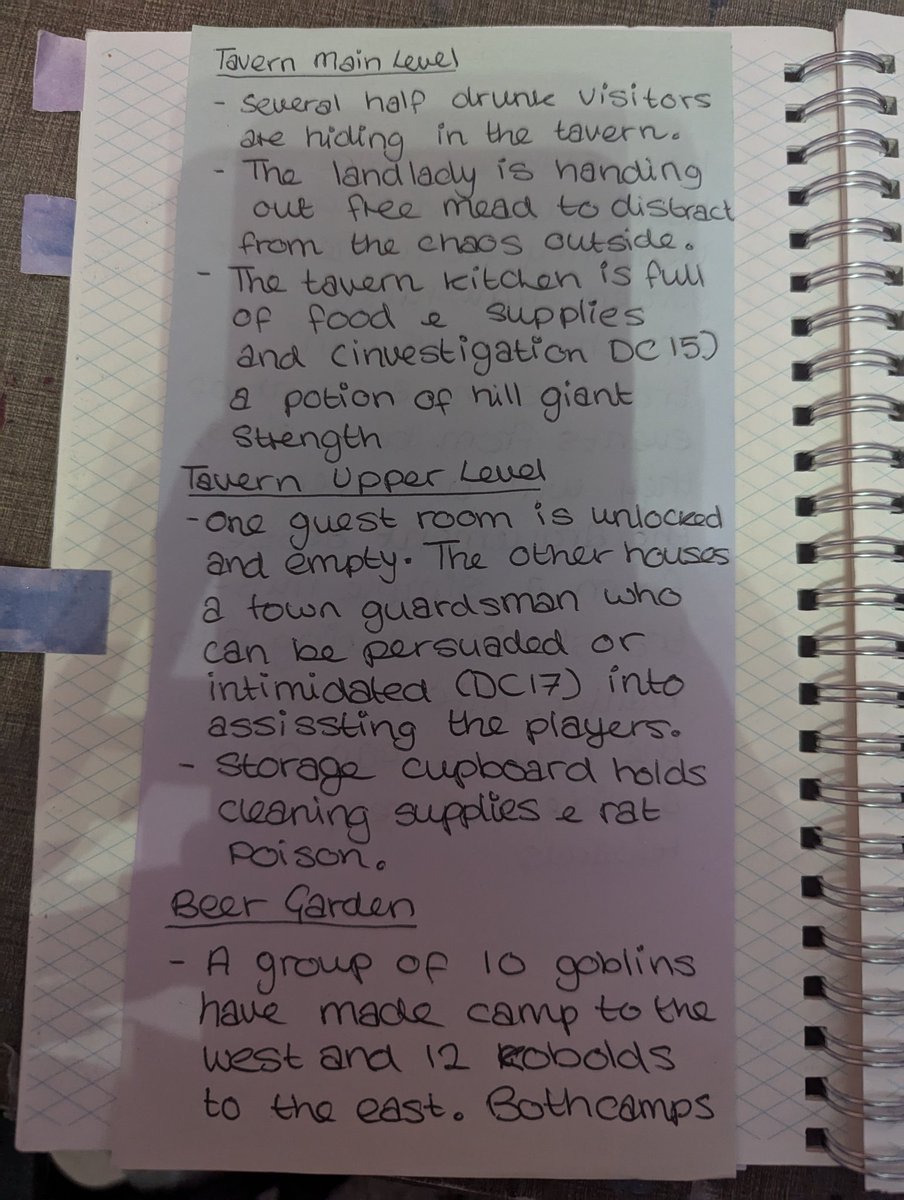 Tavern Main Level
- Several half drunk visitors
are hiding in the tavern.
- The landlady is handing
out free mead to distract
from the chaos outside.
- The tavern kitchen is full
of food e supplies
and (investigation DC 15)
a potion of hill giant
strength
Tavern Upper Level
- One guest room is unlocked
and empty. The other houses
a town guardsman who
can be persuaded or
intimidated (DC17) into
assissting the players.
- Storage cupboard holds
cleaning supplies e rat
poison.
Beer Garden
- A group of 10 goblins
have made camp to the
west and 12 kobolds
to the east. Both camps